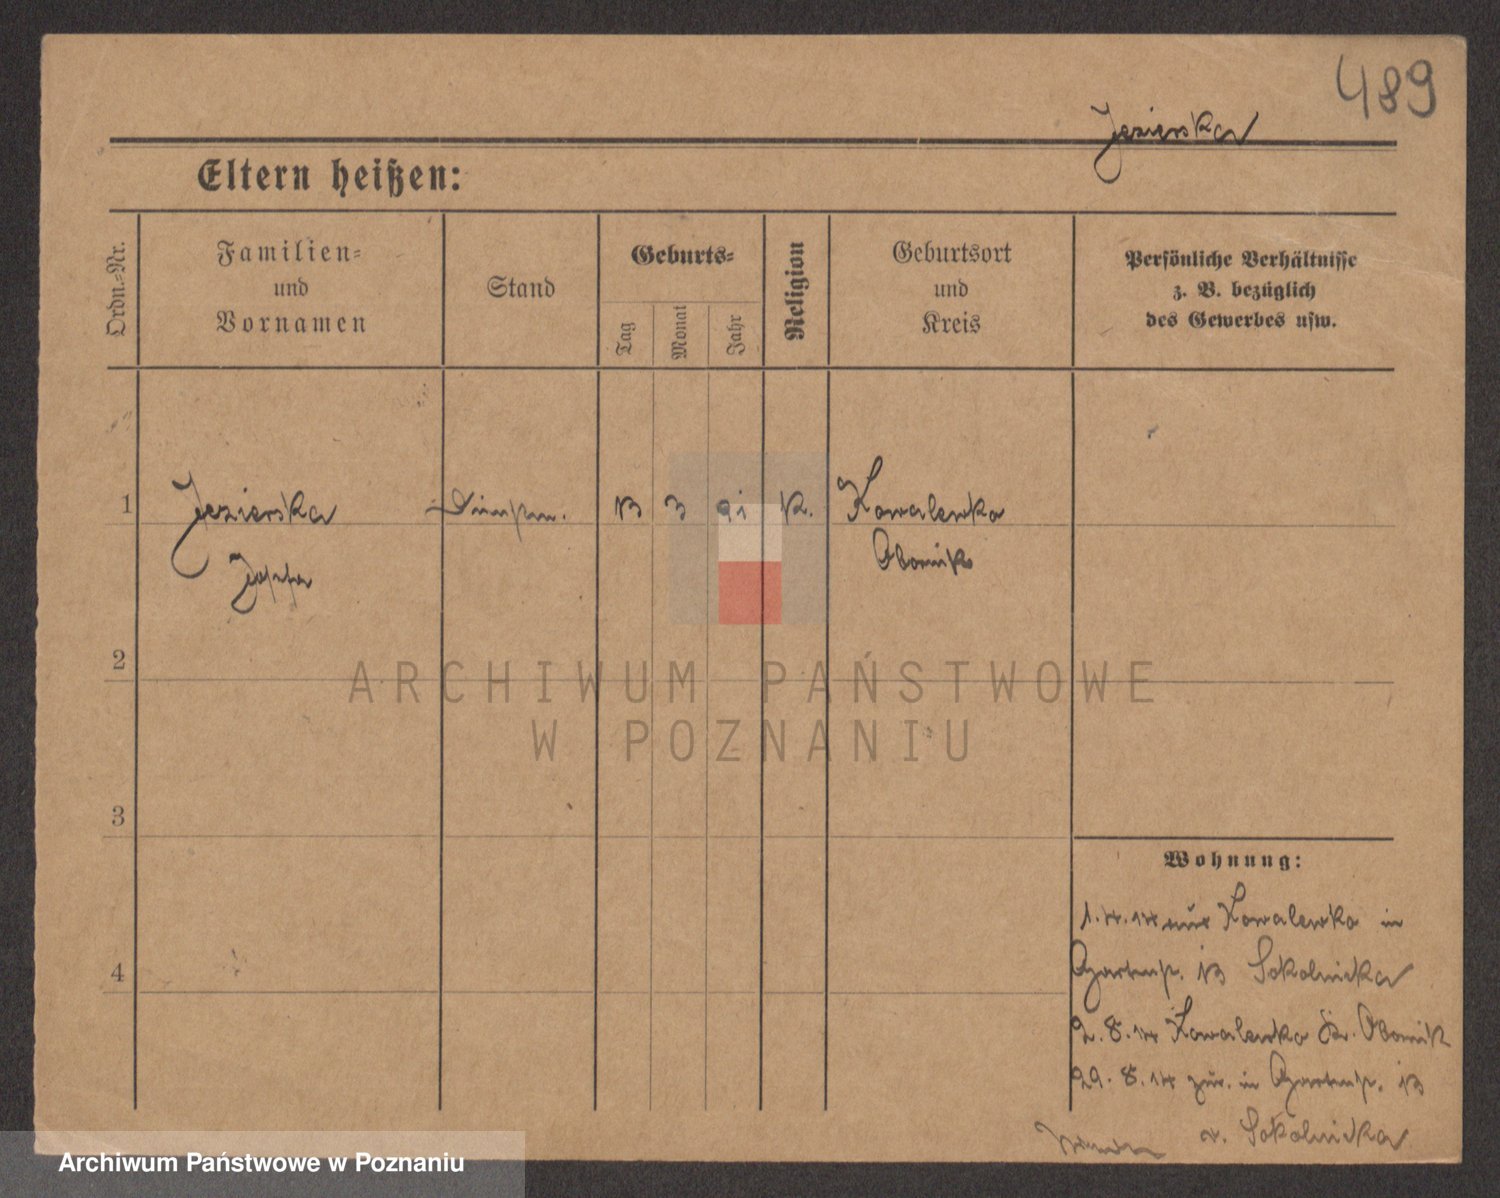 489
Jezierska
Eltern heißen:
Ordn.-Nr.
Familien-
und
Vornamen
Stand
Geburts-
Tag
Monat
Jahr
Religion
Geburtsort
und
Kreis
Persönliche Verhältnisse
z. B. bezüglich
des Gewerbes usw.
1
Jezierska
13 3 91 K.
Kowalewko
Obornik
2
ARCHIWUM PAŃSTWOWE
W POZNANIU
3
Wohnung:
Kowalewko in
13 Sokolnicka
4
2.8.14 Kowalewko Kr. Obornik
29.8.14 zur. in 13
v. Sokolnicka
Archiwum Państwowe w Poznaniu